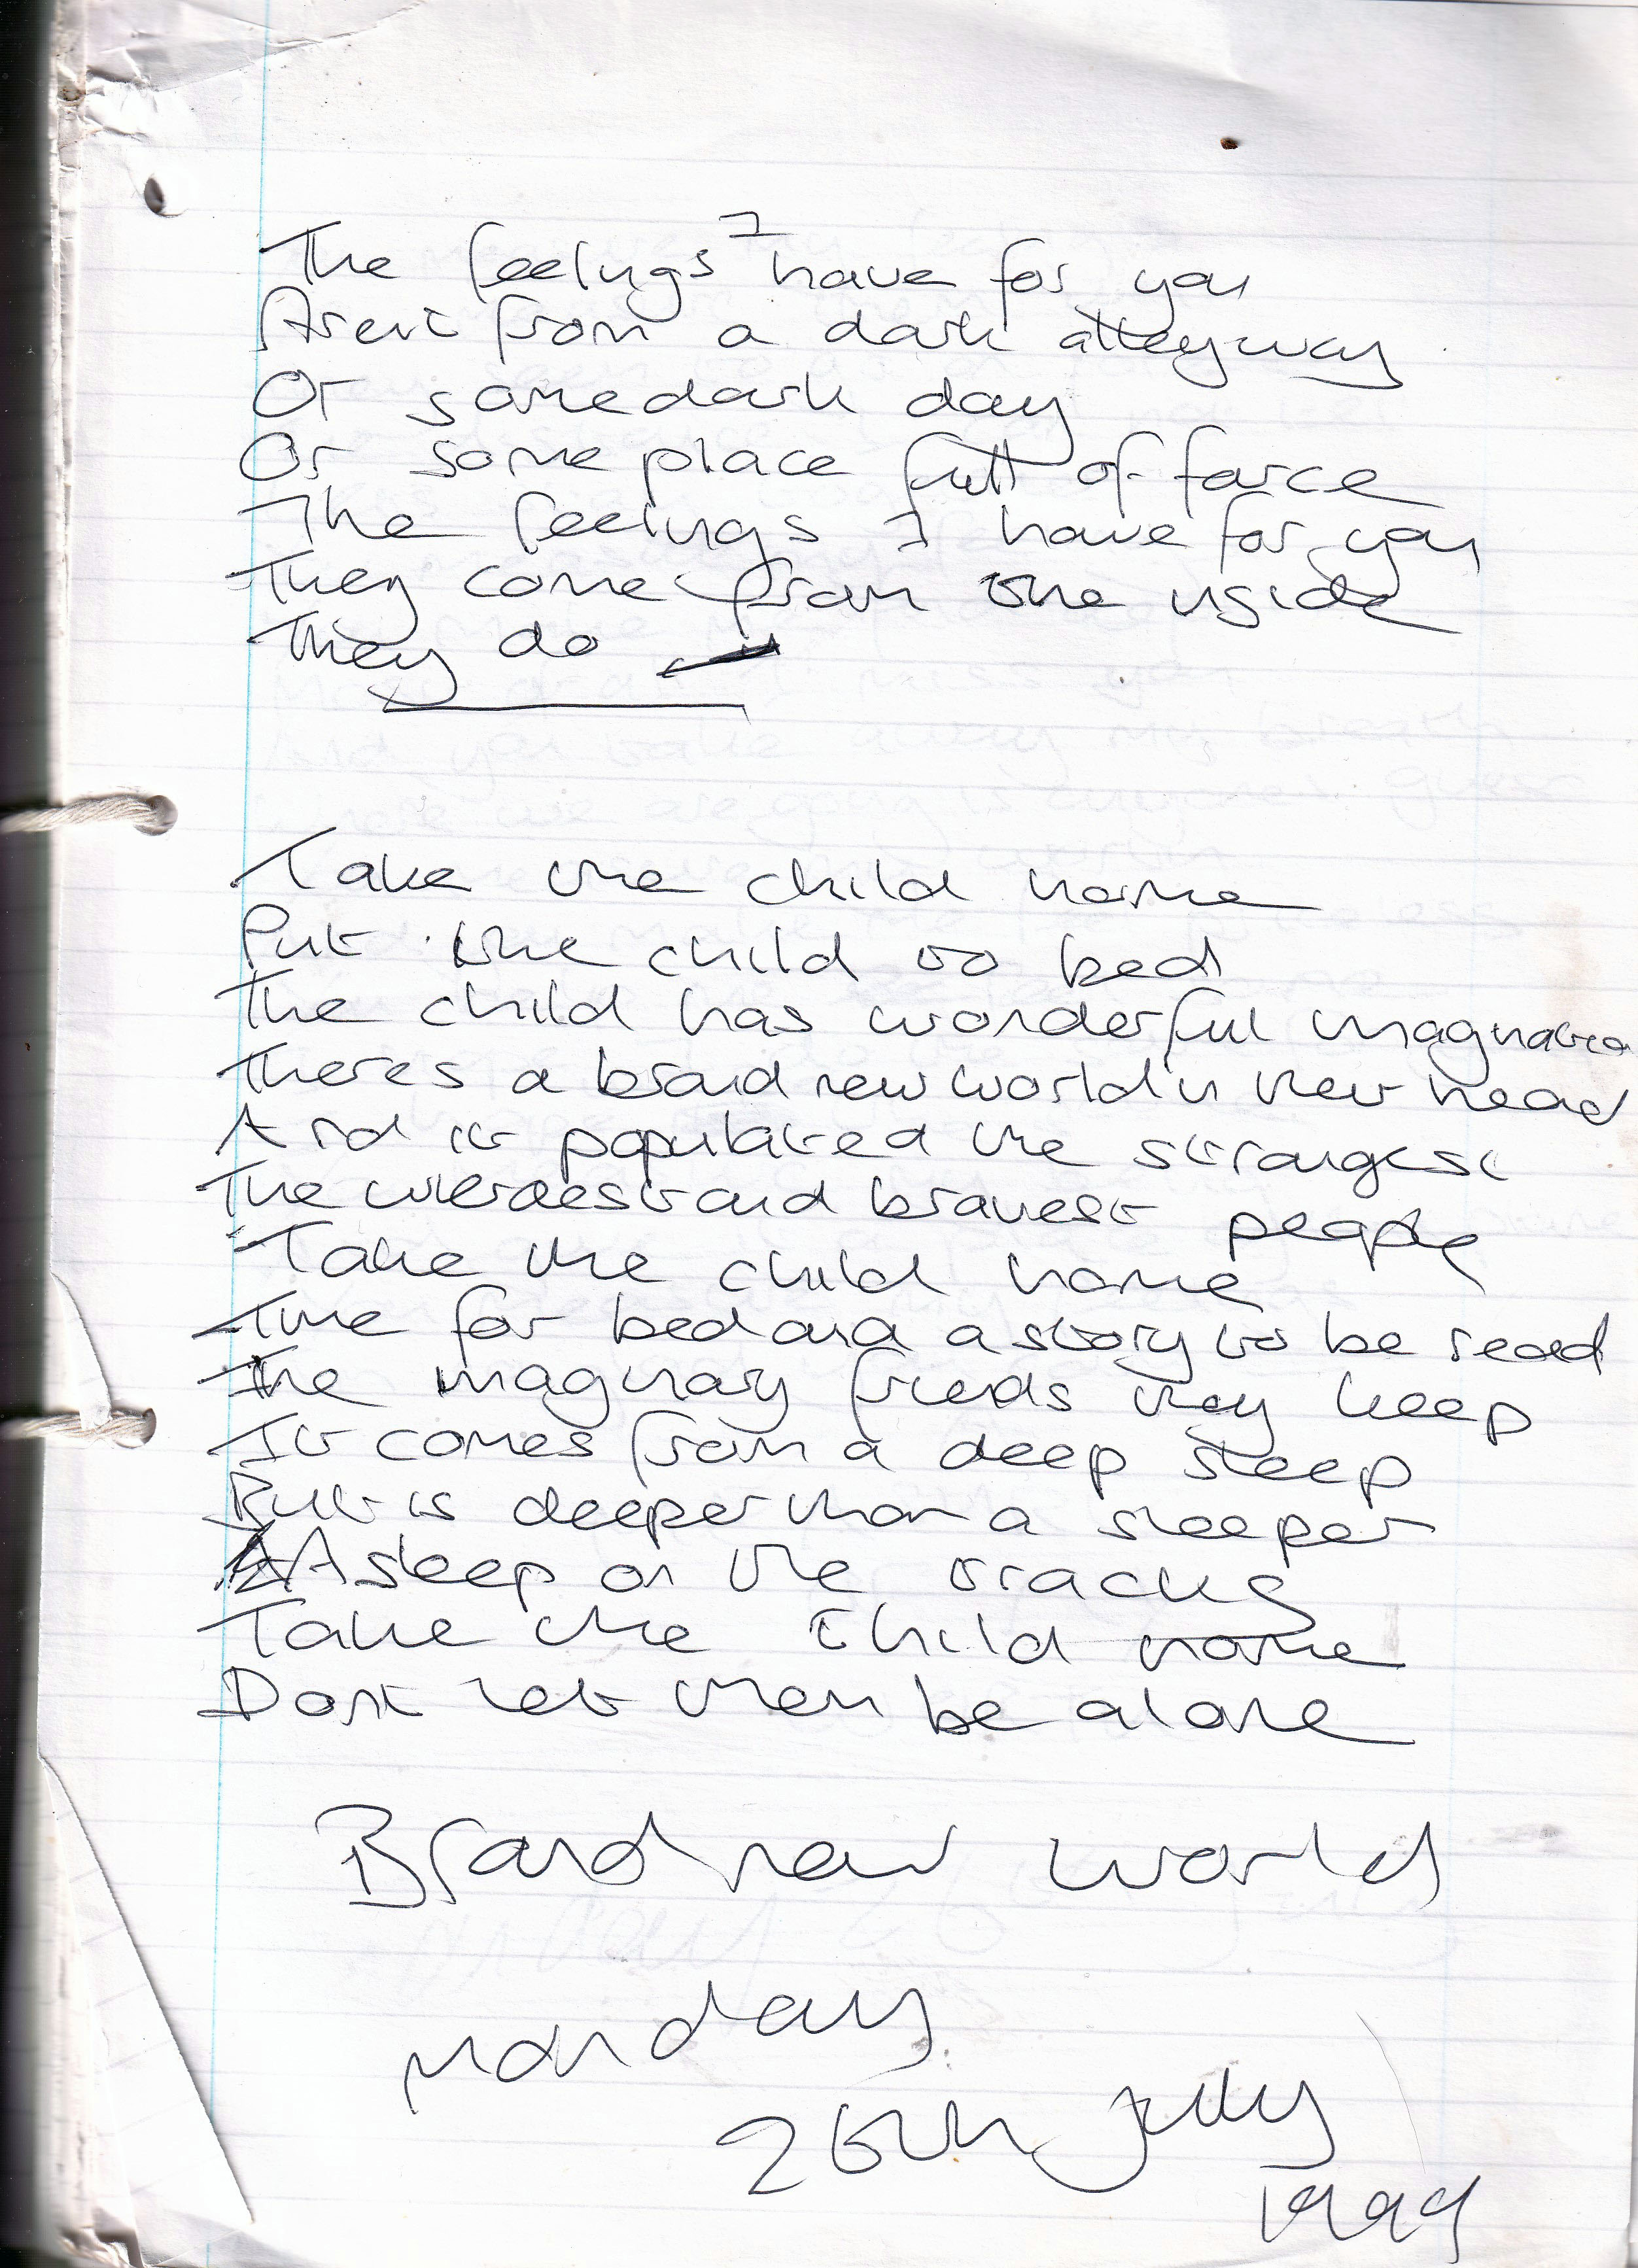 The feelings I have for you
Arent from a dark alleyway
Or some dark day
Or some place full of farce
The feelings I have for you
They come from the inside
They do
Take the child home
Put the child to bed
The child has wonderful imagination
Theres a brand new world in their head
And it populated the strangest
The wierdest and bravest people
Take the child home
Time for bed and a story to be read
The imaginary friends they keep
It comes from a deep sleep
But is deeper than a sleeper
Asleep on the tracks
Take the child home
Dont let them be alone
Brand new world
Monday
26th July
1999